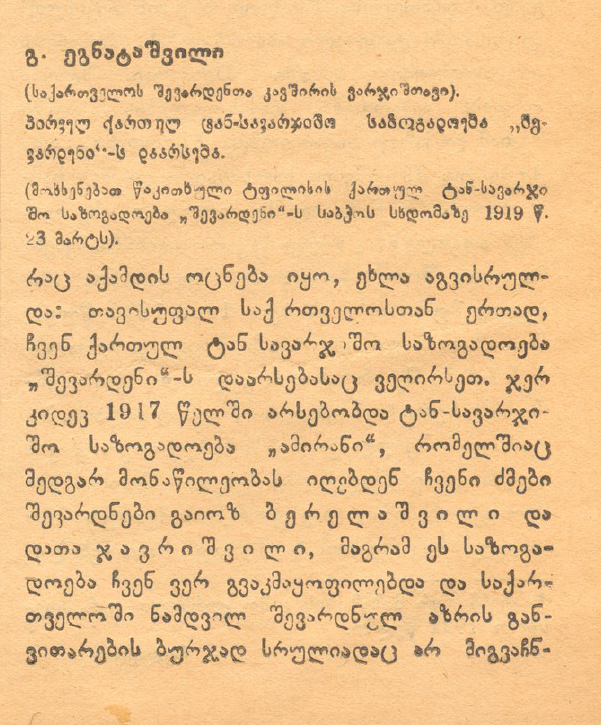 გ. ეგნატაშვილი
(საქართველოს შევარდენთა კავშირის ვარჯიშთავი).
პირველ ქართულ ტან-სავარჯიშო საზოგადოება „შე-
ვარდენი“-ს დაარსება.
(მოხსენებათ წაკითხული ტფილისის ქართულ ტან-სავარჯი
შო საზოგადოება „შევარდენი“-ს საბჭოს სხდომაზე 1919 წ.
23 მარტს).
რაც აქამდის ოცნება იყო, ეხლა აგვისრულ-
და: თავისუფალ საქ რთველოსთან ერთად,
ჩვენ ქართულ ტან სავარჯიშო საზოგადოება
„შევარდენი“-ს დაარსებასაც ველირსეთ. ჯერ
კიდევ 1917 წელში არსებობდა ტან-სავარჯი-
შო საზოგადოება „ამირანი“, რომელშიაც
მედგარ მონაწილეობას იღებდენ ჩვენი ძმები
შევარდნები გაიოზ ბერელაშვილი და
დათა ჯავრიშვილი, მაგრამ ეს საზოგა-
დოება ჩვენ ვერ გვაკმაყოფილებდა და საქარ-
თველოში ნამდვილ შევარდნულ აზრის გან-
ვითარების ბურჯად სრულიადაც არ მიგვაჩნ-